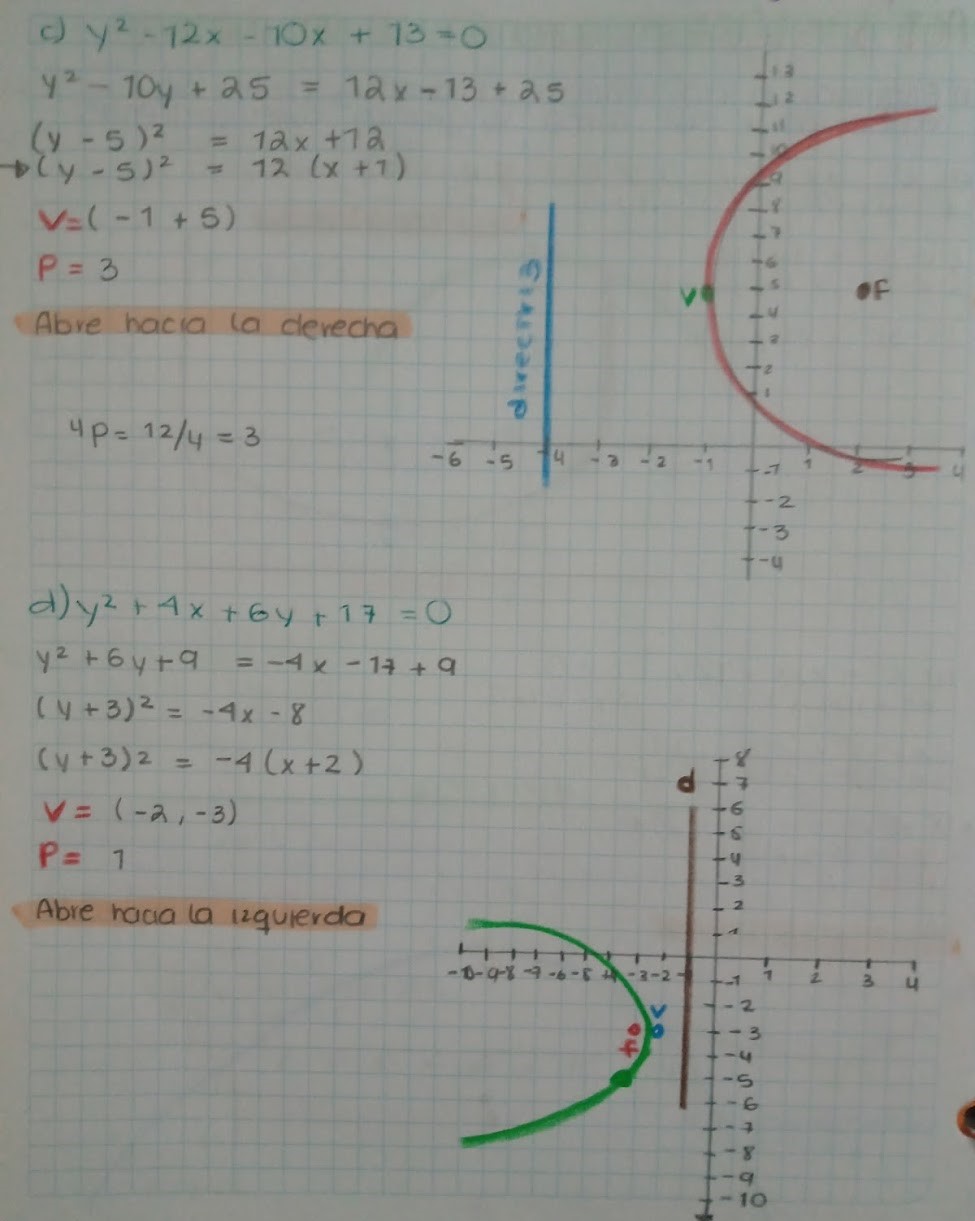 c) y² - 12x - 10x + 13 = 0
y² - 10y + 25 = 12x - 13 + 25
(y - 5)² = 12x + 12
→ (y - 5)² = 12 (x + 1)
V = (-1 + 5)
P = 3
Abre hacia la derecha
4p = 12/4 = 3
13
12
11
10
9
8
7
6
5
4
3
2
1
directriz
V
F
-6 -5 -4 -3 -2 -1 1 2 3 4
-1
-2
-3
-4
d) y² + 4x + 6y + 17 = 0
y² + 6y + 9 = -4x - 17 + 9
(y + 3)² = -4x - 8
(y + 3)2 = -4 (x + 2)
V = (-2, -3)
P = 1
Abre hacia la izquierda
d
8
7
6
5
4
3
2
1
-10 -9 -8 -7 -6 -5 -4 -3 -2 1 2 3 4
V
F
-1
-2
-3
-4
-5
-6
-7
-8
-9
-10